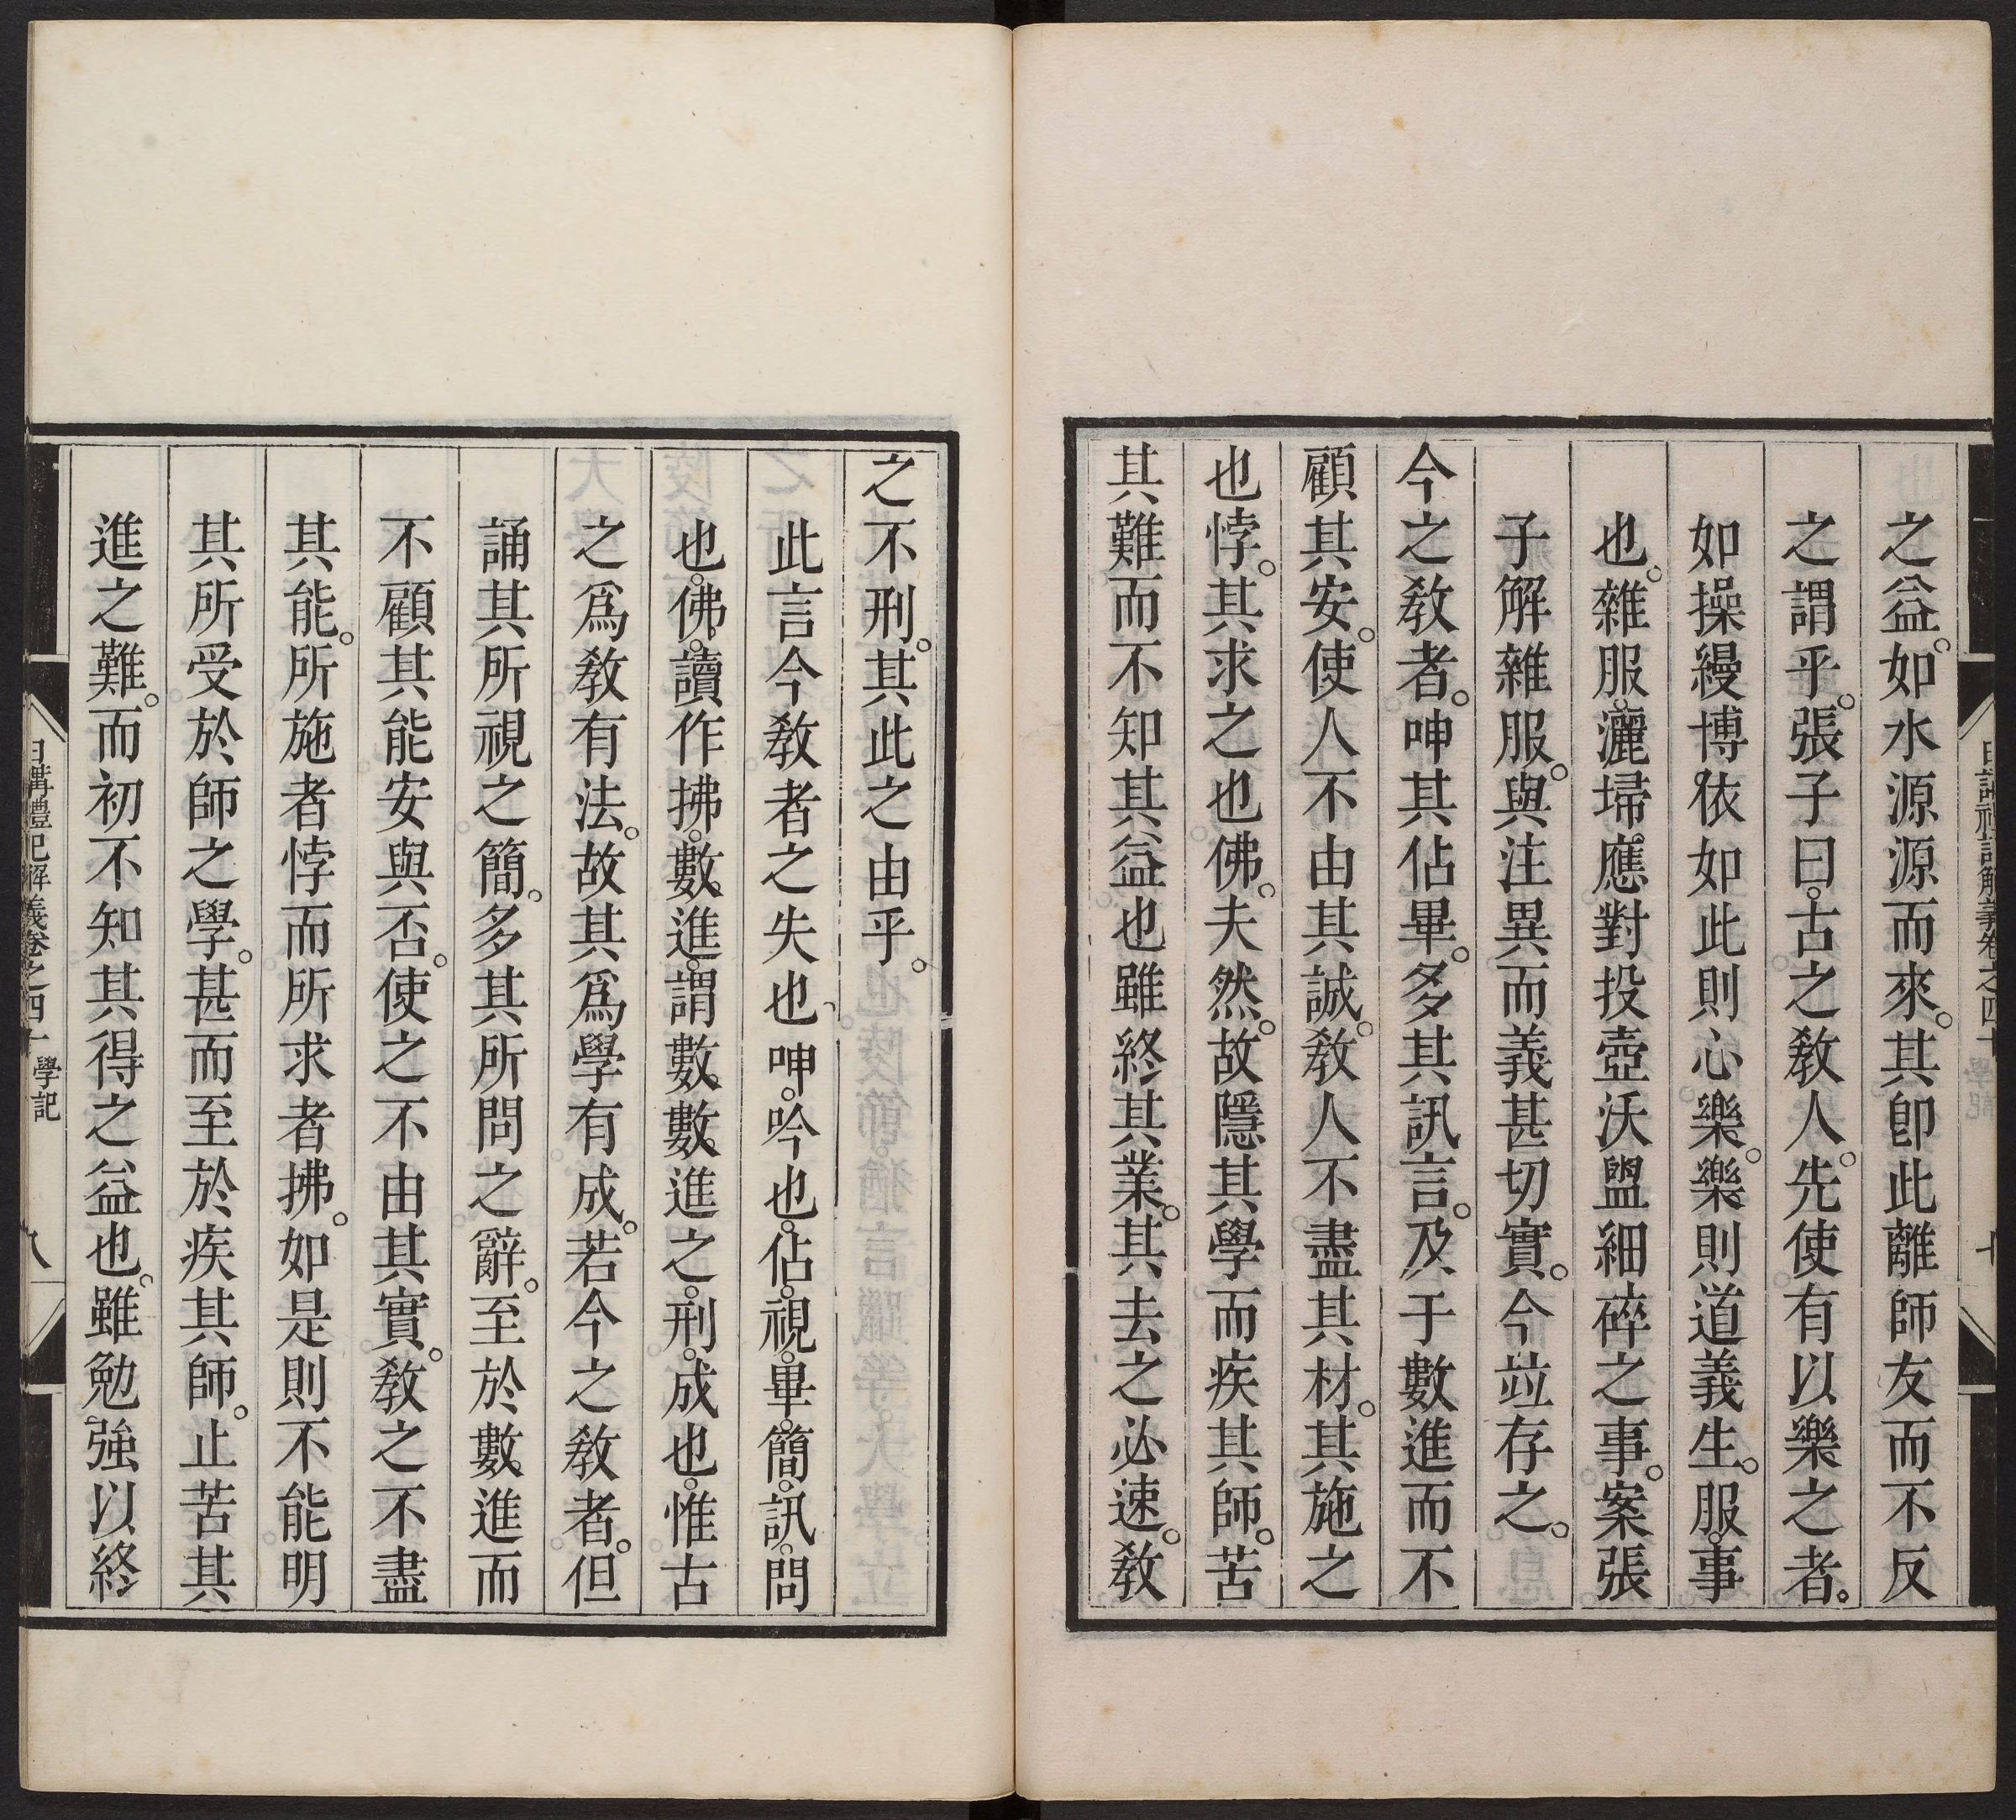 之益。如水源源而來。其卽此離師友而不反
之謂乎。張子曰。古之敎人。先使有以樂之者。
如操縵博依如此則心樂。樂則道義生。服。事
也。雜服。灑埽應對投壺沃盥細碎之事。案張
子解雜服。與注異而義甚切實。今竝存之。
今之敎者。呻其佔畢。多其訊言。及于數進而不
顧其安。使人不由其誠。敎人不盡其材。其施之
也悖。其求之也佛。夫然。故隱其學而疾其師。苦
其難而不知其益也雖終其業。其去之必速。敎
日講禮記解義卷之四十 學記
之不刑。其此之由乎。
此言今敎者之失也、呻。吟也。佔。視。畢。簡。訊。問
也。佛。讀作拂。數。進。謂數數進之。刑。成也。惟古
之爲敎有法。故其爲學有成。若今之敎者。但
誦其所視之簡。多其所問之辭。至於數進而
不顧其能安與否。使之不由其實。敎之不盡
其能。所施者悖而所求者拂。如是則不能明
其所受於師之學。甚而至於疾其師。止苦其
進之難。而初不知其得之益也。雖勉強以終
日講禮記解義卷之四十 學記 八